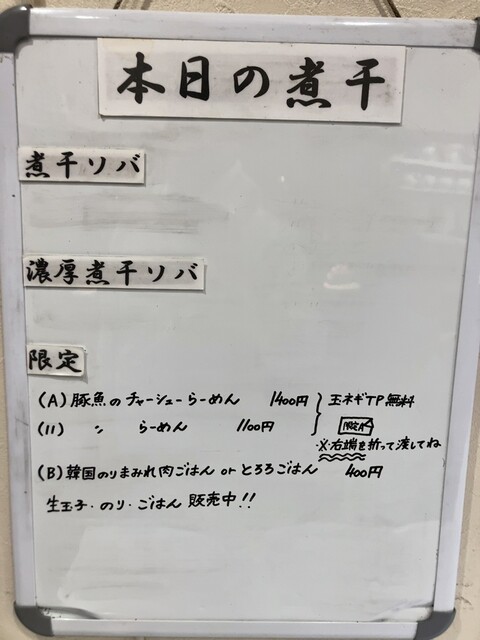 本日の煮干
煮干ソバ
濃厚煮干ソバ
限定
(A) 豚魚のチャーシューらーめん 1400円 } 玉ネギTP無料
(〃) 〃 らーめん 1100円 限定A
※右端を折って渡してね
(B) 韓国のりまみれ肉ごはん or とろろごはん 400円
生玉子・のり・ごはん 販売中!!